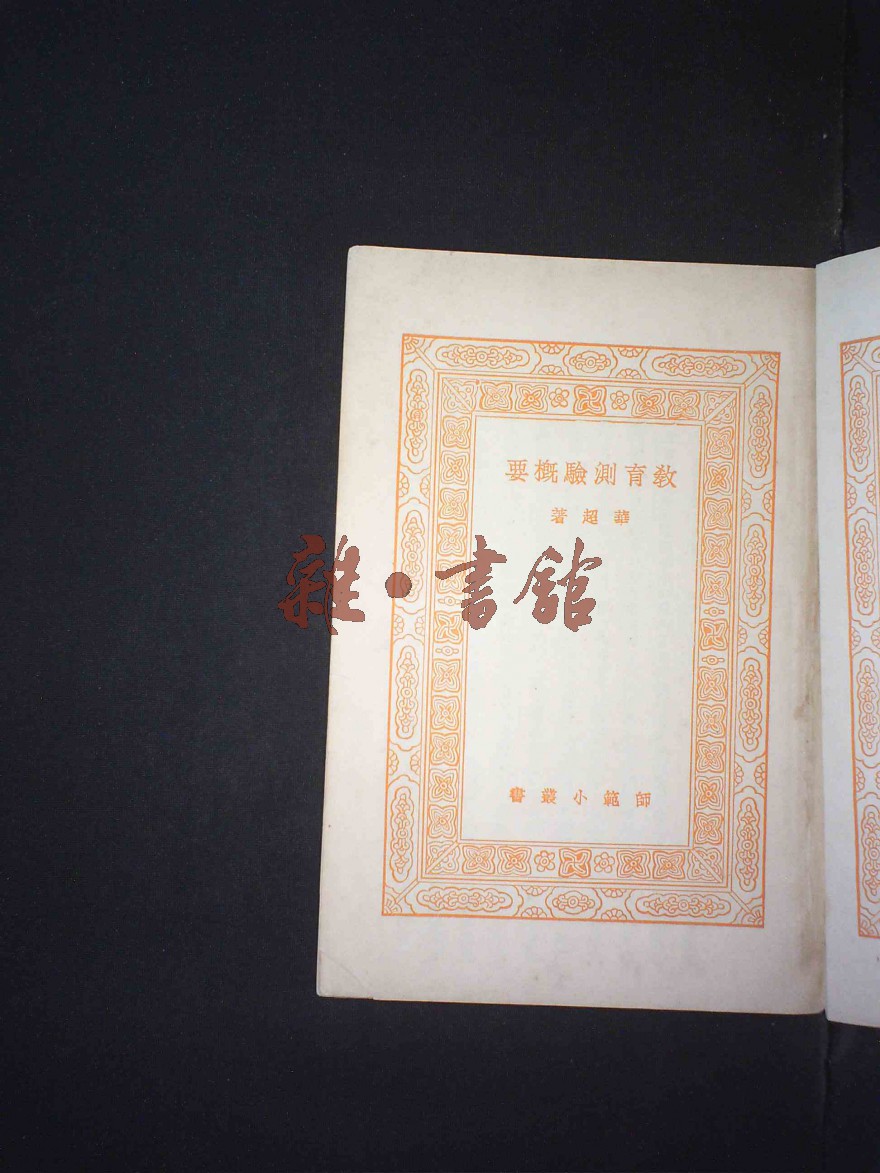 教育測驗概要
華超著
雜·書館
師範小叢書